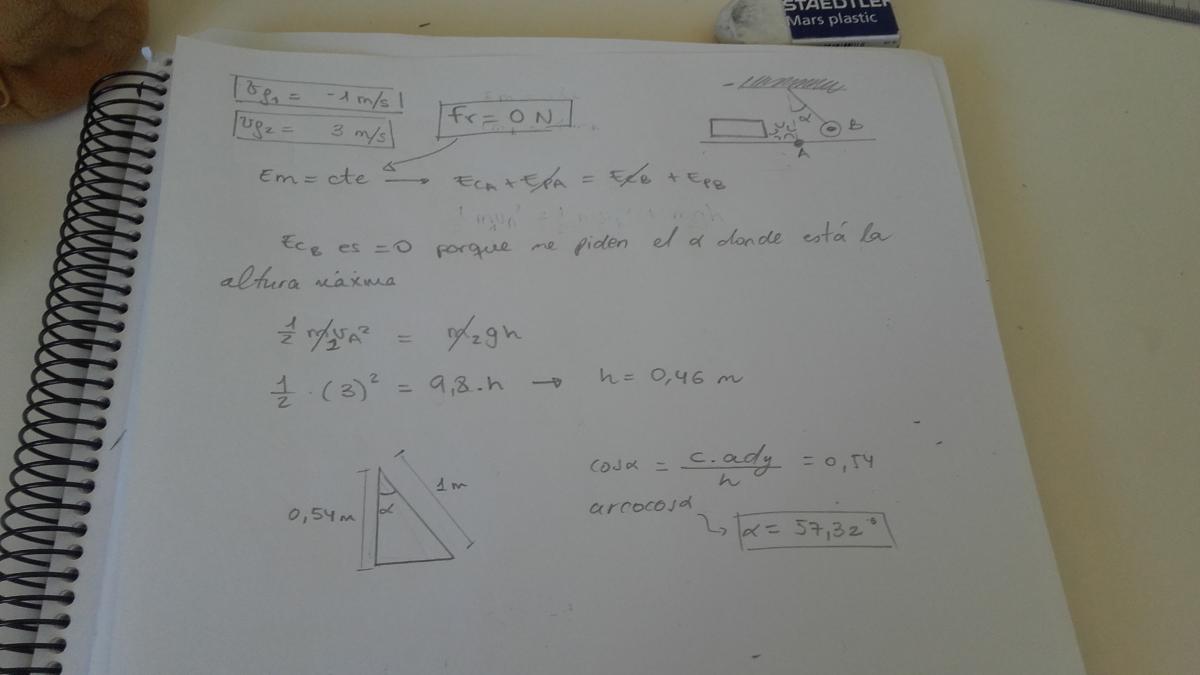 STAEDTLER
Mars plastic
vf₁ = -1 m/s
vf₂ = 3 m/s
Fr = 0 N
α
B
A
Em = cte → EcA + EpA = EcB + EpB
EcB es = 0 porque me piden el α donde está la
altura máxima
1/2 m₂vA² = m₂gh
1/2 · (3)² = 9,8·h → h = 0,46 m
0,54 m
α
1 m
cosα = c.ady/h = 0,54
arcocosα
α = 57,32°